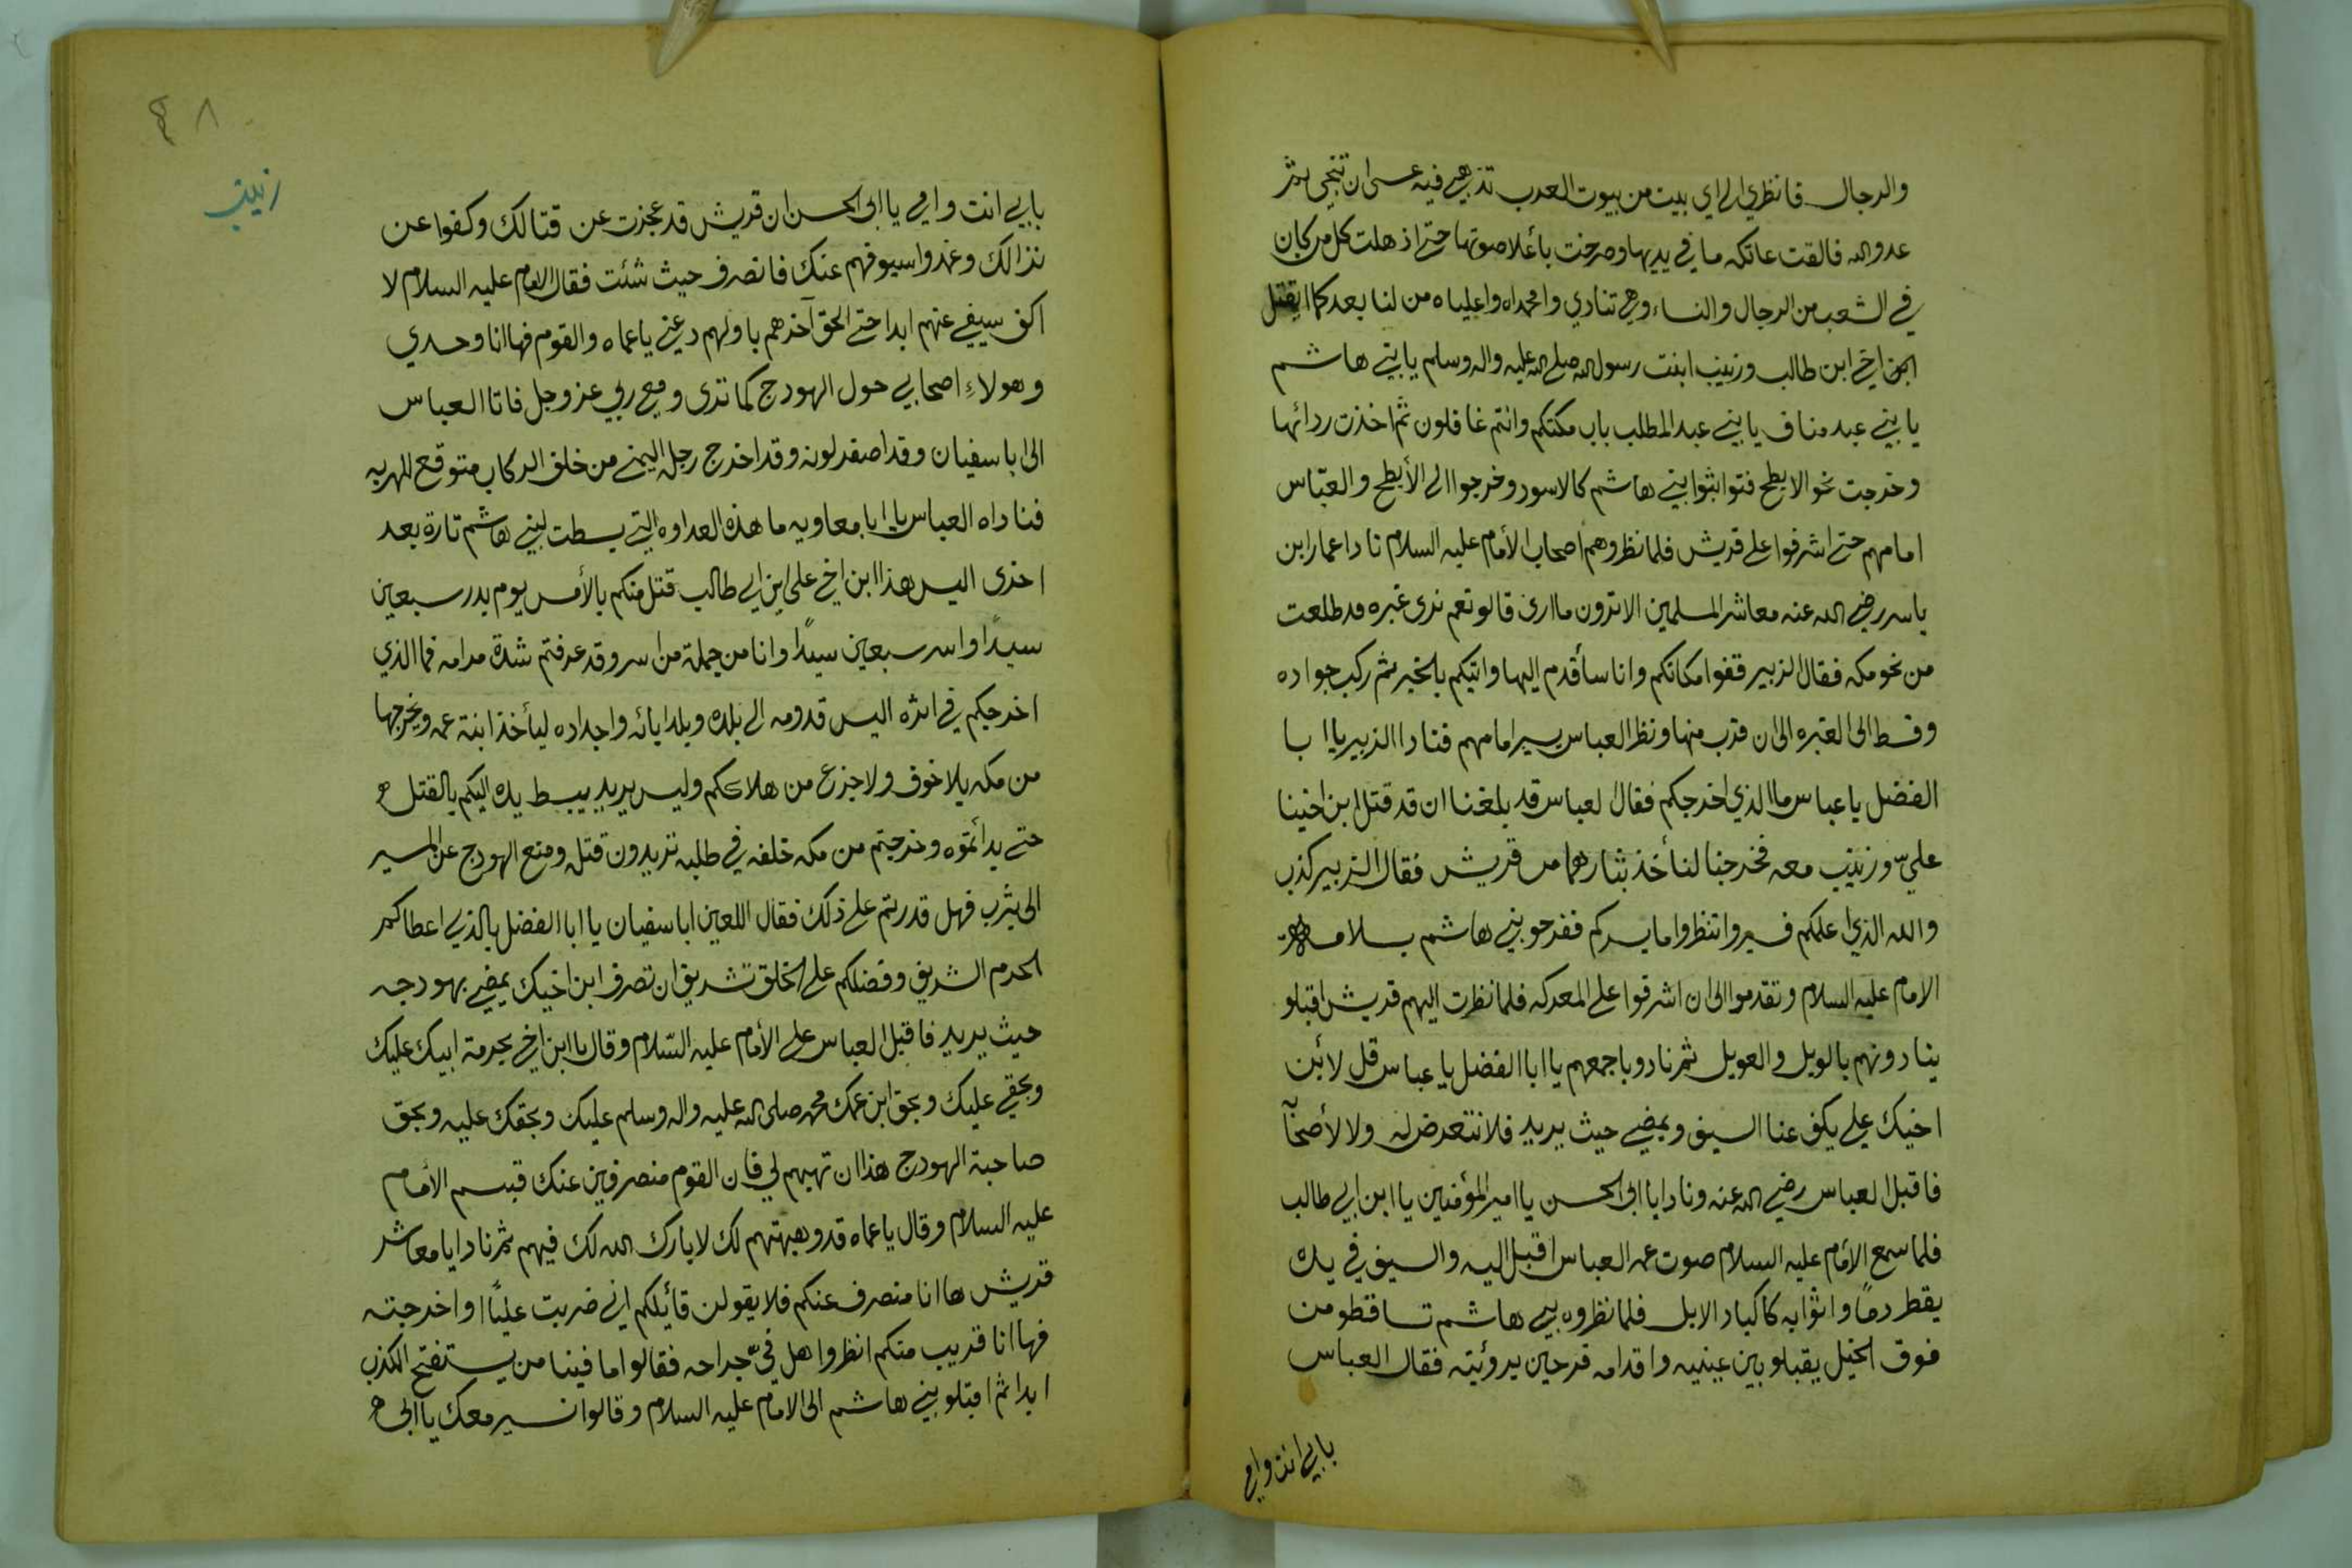 والرجال فانظري الى اي بيت من بيوت العرب تذهبي فيه عسى ان تنجي بثر
عدو الله فالقت عاتكه ما في يديها وصرخت بأعلا صوتها حتى اذهلت كل من كان
في الشعب من الرجال والنساء وهي تنادي وامحمداه واعلياه من لنا بعدكما ايقتل
ابن اخي ابن طالب وزينب ابنت رسول الله صلى الله عليه واله وسلم يا بني هاشم
يا بني عبد مناف يا بني عبد المطلب باب مكتكم وانتم غافلون ثم اخذت ردائها
وخرجت نحو الابطح فتواثبوا بني هاشم كالاسود وخرجوا الى الأبطح والعبّاس
امامهم حتى اشرفوا على قريش فلما نظروهم اصحاب الأمام عليه السلام نادا عمار ابن
ياسر رضي الله عنه معاشر المسلمين الا ترون ما ارى قالو نعم نرى غبره قد طلعت
من نحو مكه فقال الزبير قفوا مكانكم وانا سأقدم اليها واتيكم بالخبر ثم ركب جواده
وقسط الى الغبره الى ان قرب منها ونظر العباس يسير امامهم فنادا الزبير يا ابا
الفضل يا عباس ما الذي اخرجكم فقال لعباس قد بلغنا ان قد قتل ابن اخينا
عليّ وزينب معه فخرجنا لنأخذ بثارهما من قريش فقال الزبير كذب
والله الذي اعلمكم فسيروا وانتظروا ما يسركم ففرحو بني هاشم بسلامة
الامام عليه السلام وتقدموا الى ان اشرفوا على المعركه فلما نظرت اليهم قريش اقبلو
ينادونهم بالويل والعويل ثم نادو باجمعهم يا ابا الفضل يا عباس قل لأبن
اخيك علي يكف عنا السيف ويمضي حيث يريد فلا نتعرض له ولا لأصحآ
فاقبل العباس رضي الله عنه ونادا يا ابى الحسن يا امير المؤمنين يا ابن ابي طالب
فلما سمع الأمام عليه السلام صوت عمه العباس اقبل اليه والسيف في يده
يقطر دمًا واثوابه كاكباد الابل فلما نظروه بني هاشم تساقطو من
فوق الخيل يقبلو بين عينيه واقدامه فرحين برؤيته فقال العباس
بابي انت وامي
٤٨
زينب
بابي انت وامي يا ابى الحسن ان قريش قد عجزت عن قتالك وكفوا عن
نزالك وغمدوا سيوفهم عنك فانصرف حيث شئت فقال الامام عليه السلام لا
اكف سيفي عنهم ابدا حتى الحق آخرهم باولهم دعني يا عماه والقوم فها انا وحدي
وهولاءِ اصحابي حول الهودج كما ترى ومعي ربي عز وجل فاتا العباس
الى ابا سفيان وقد اصفر لونه وقد اخرج رجله اليمنى من خلف الركاب متوقع للهربه
فناداه العباس يا ابا معاويه ما هذه العداوه التي بسطت لبني هاشم تارة بعد
اخرى اليس هذا ابن اخي علي ابن ابي طالب قتل منكم بالأمس يوم بدر سبعين
سيدًا واسر سبعين سيدًا وانا من جملة من اسر وقد عرفتم شدة مرامه فما الذي
اخرجكم في اثره اليس قدومه الى بلده وبلد ابائه واجداده ليأخذ ابنة عمه ويخرجها
من مكه بلا خوف ولا جزع من هلاككم وليس يريد يبسط يده اليكم بالقتل
حتى بدأتموه وخرجتم من مكه خلفه في طلبه تريدون قتله ومنع الهودج عن المسير
الى يثرب فهل قدرتم على ذلك فقال اللعين ابا سفيان يا ابا الفضل بالذي اعطاكم
الحرم الشريف وفضلكم على الخلق تشريف ان تصرف ابن اخيك يمضي بهودجه
حيث يريد فاقبل العباس على الأمام عليه السّلام وقال يا ابن اخي بحرمة ابيك عليك
وبحقي عليك وبحق ابن عمك محمد صلى الله عليه واله وسلم عليك وبحقك عليه وبحق
صاحبة الهودج هذا ان تهبهم لي فان القوم منصرفين عنك فبسم الأمام
عليه السلام وقال يا عماه قد وهبتهم لك لا بارك الله لك فيهم ثم نادا يا معاشر
قريش ها انا منصرف عنكم فلا يقولن قائلكم اني ضربت عليًا او اخرجته
فها انا قريب منكم انظروا هل فيّ جراحه فقالوا ما فينا من يستفتح الكذب
ابدا ثم اقبلو بني هاشم الى الامام عليه السلام وقالوا نسير معك يا ابى